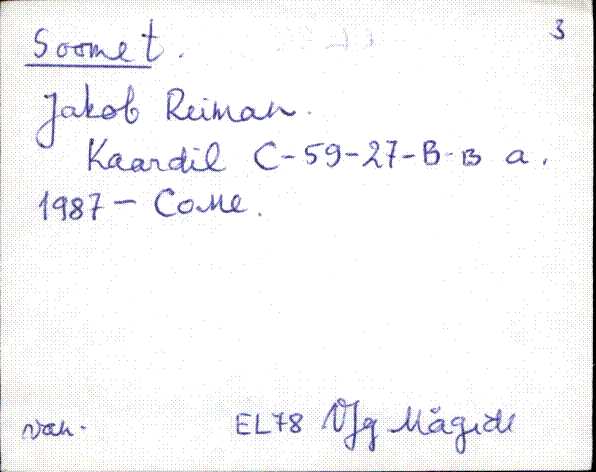 3
Soomet.
Jakob Reiman.
Kaardil C-59-27-B-B a.
1987 - Соме.
EL78 Vjg Mägede